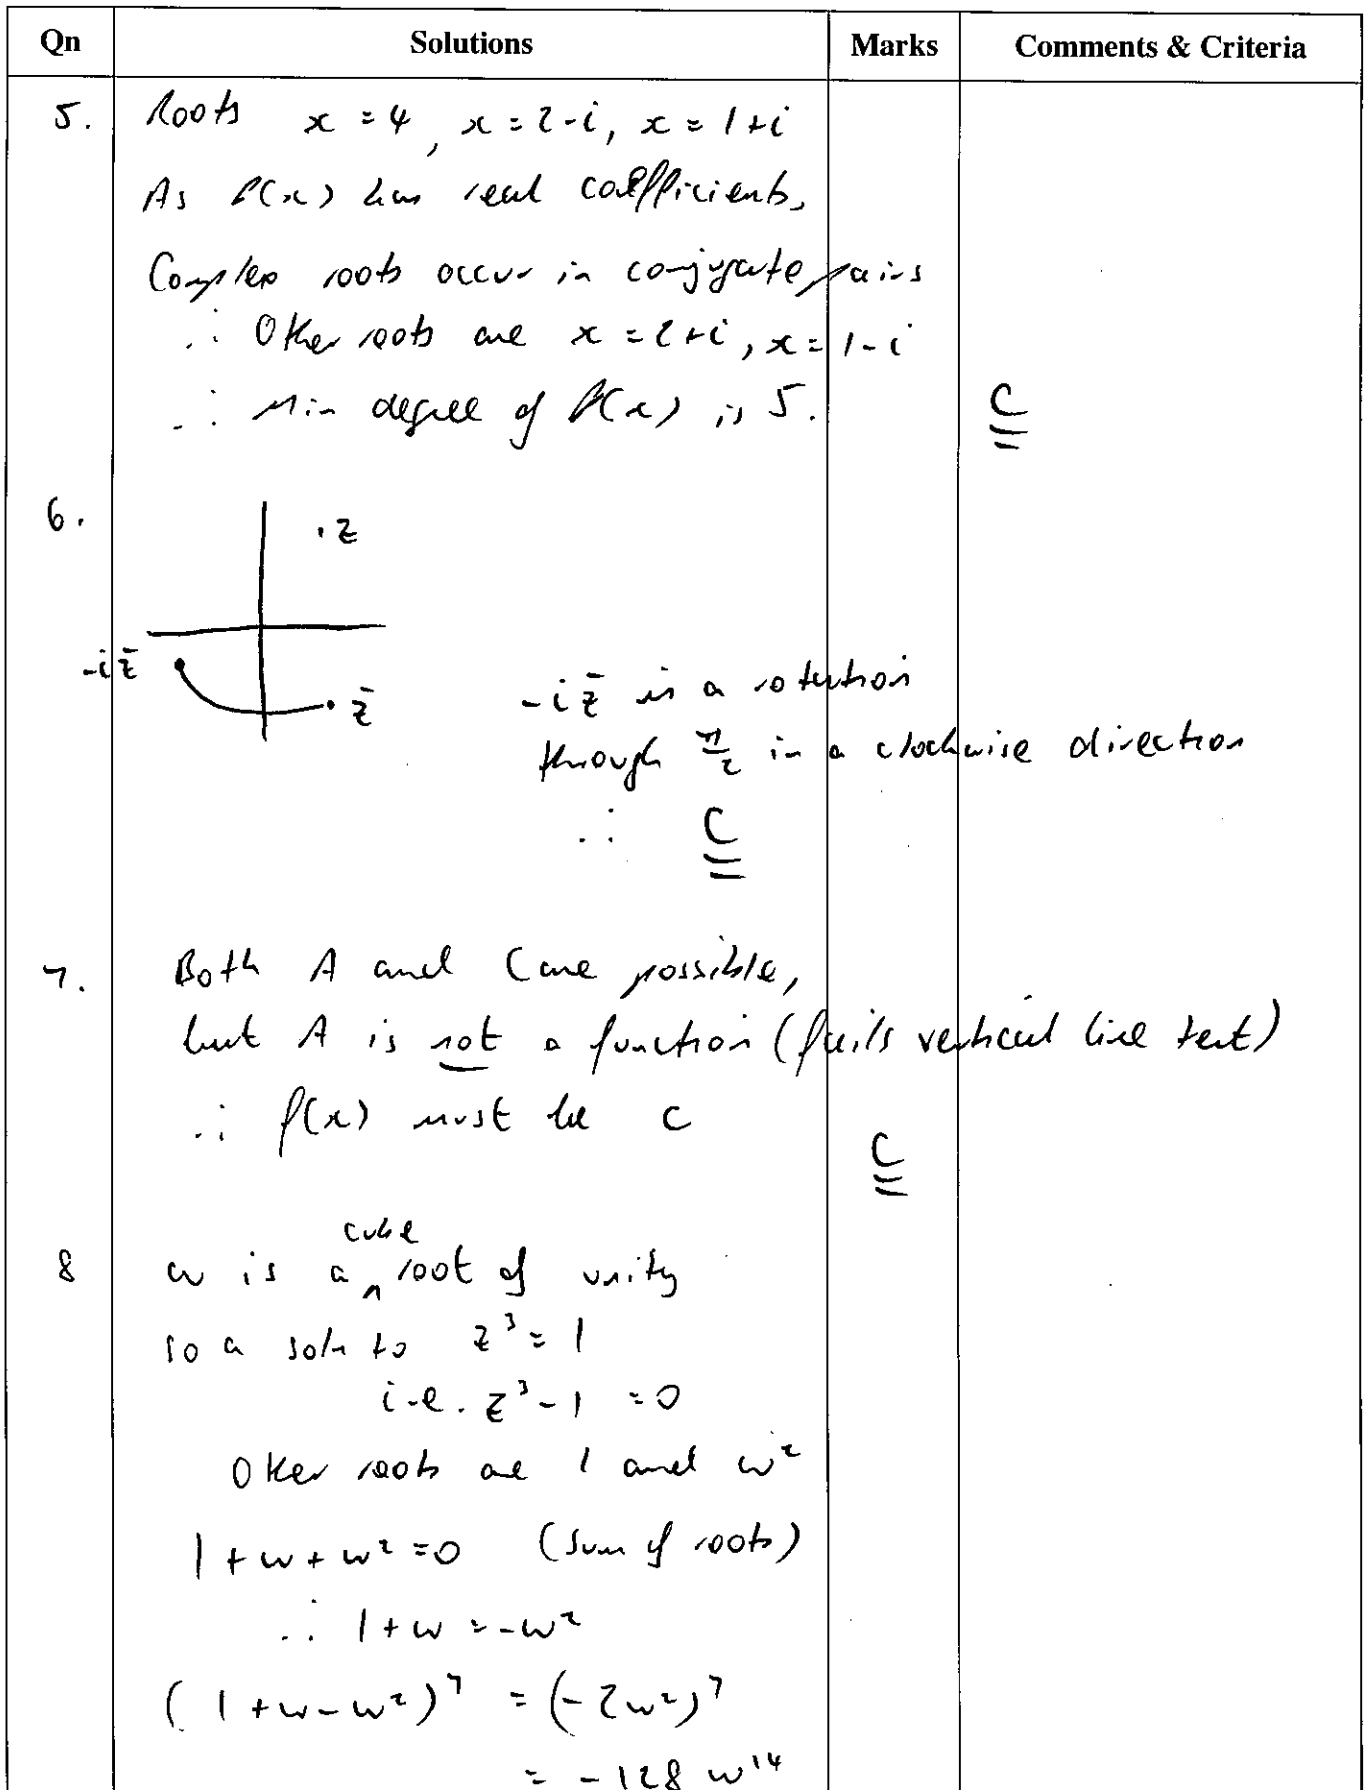 Qn Solutions Marks Comments & Criteria
5. Roots x = 4, x = 2-i, x = 1+i
As P(x) has real coefficients,
Complex roots occur in conjugate pairs
∴ Other roots are x = 2+i, x = 1-i
∴ Min degree of P(x) is 5. C
6. z
-iz̄
z̄
-iz̄ is a rotation
through π/2 in a clockwise direction
∴ C
7. Both A and C are possible,
but A is not a function (fails vertical line test)
∴ f(x) must be C
C
8 w is a cube root of unity
so a soln to z³ = 1
i.e. z³ - 1 = 0
Other roots are 1 and w²
1 + w + w² = 0 (Sum of roots)
∴ 1 + w = -w²
(1 + w - w²)⁷ = (-2w²)⁷
= -128 w¹⁴